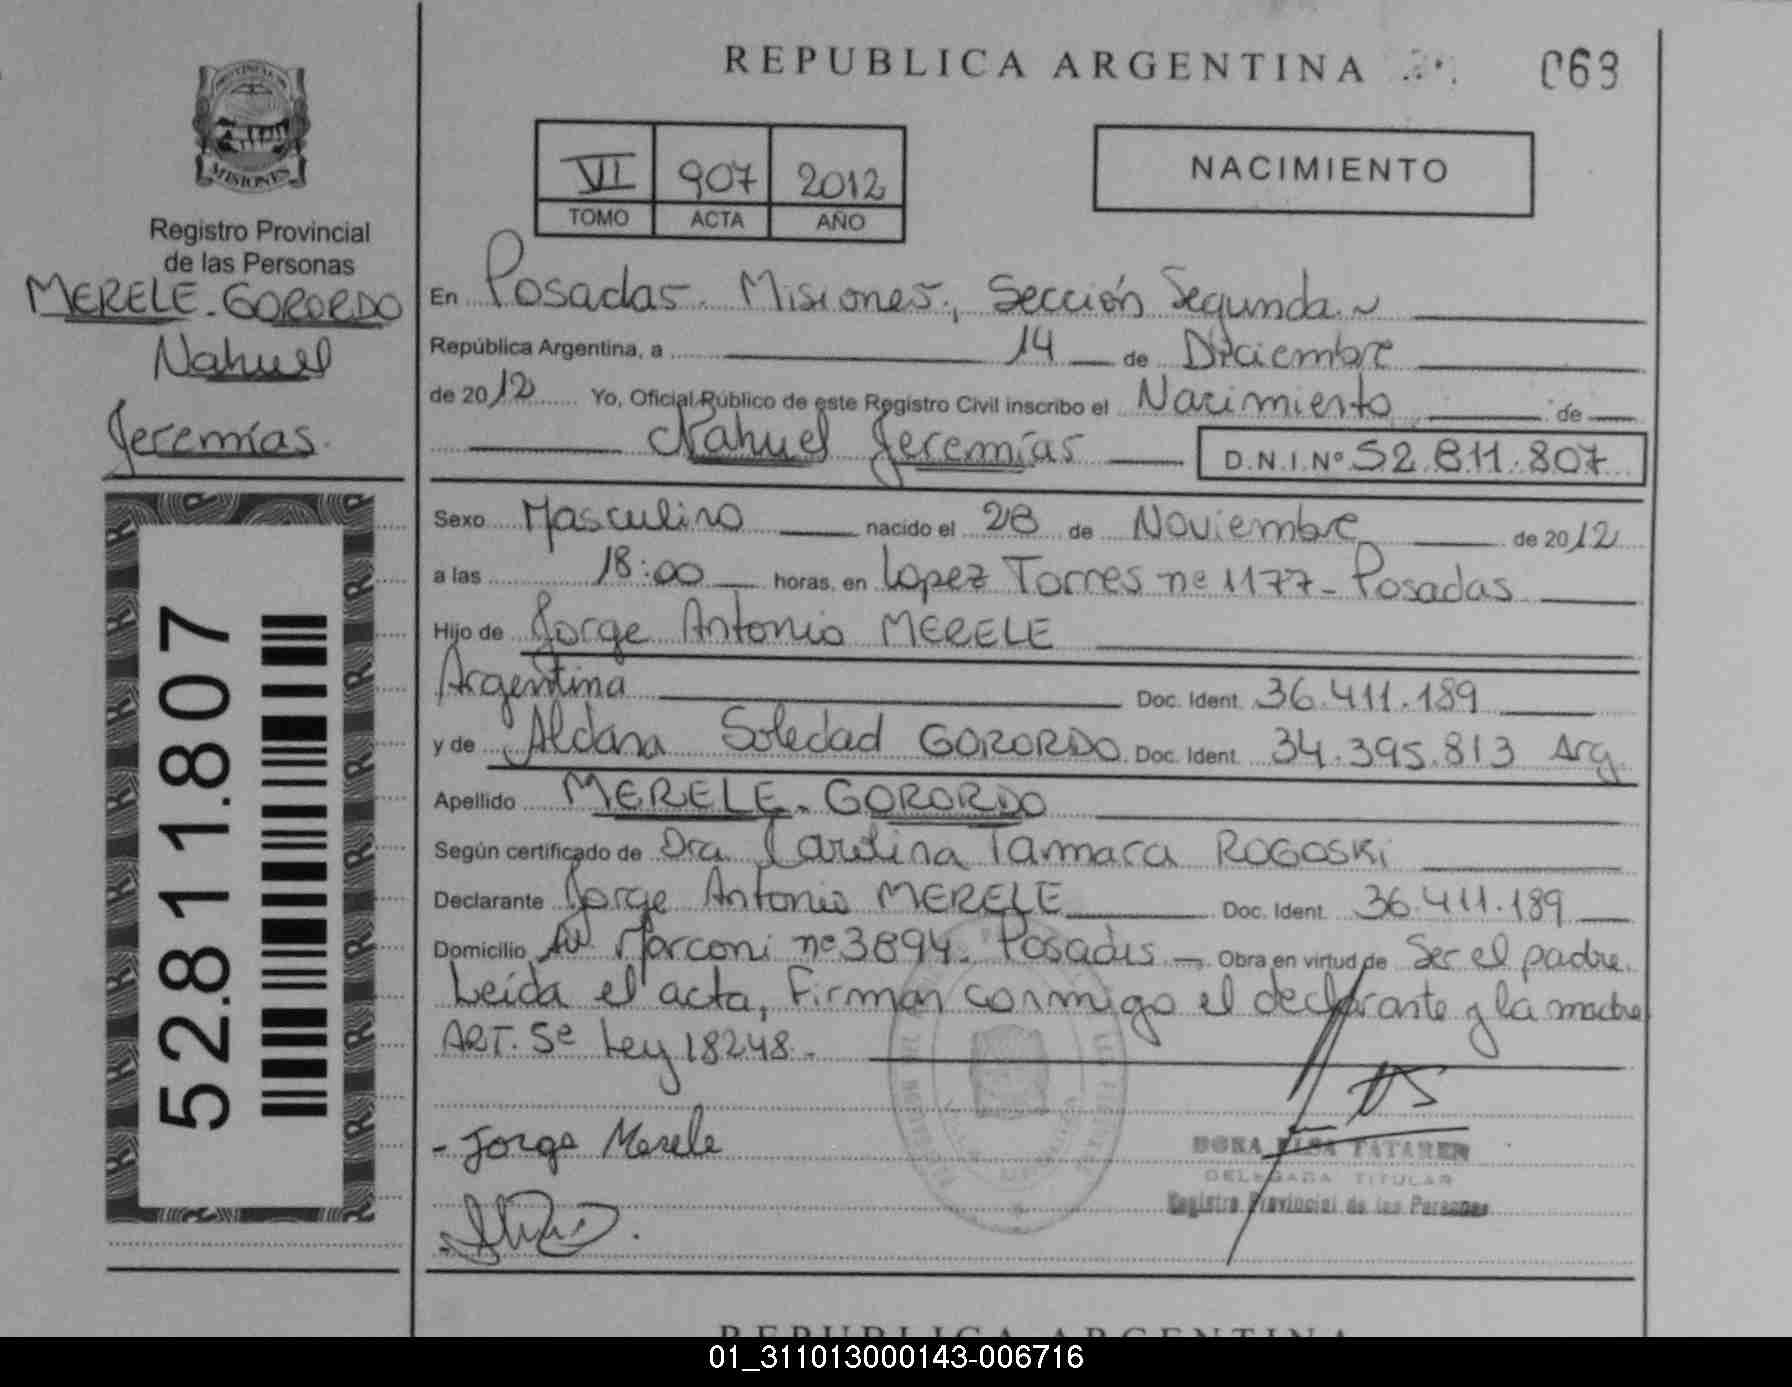 REPUBLICA ARGENTINA
069
PROVINCIA DE
MISIONES
Registro Provincial
de las Personas
MERELE-GORORDO
Nahuel
Jeremías.
52.811.807
VI 907 2012
TOMO ACTA AÑO
NACIMIENTO
En Posadas. Misiones, Sección Segunda.
República Argentina, a 14 de Diciembre
de 2012 Yo, Oficial Público de este Registro Civil inscribo el Nacimiento de
Nahuel Jeremías D.N.I.Nº 52.811.807
Sexo Masculino nacido el 28 de Noviembre de 2012
a las 18:00 horas, en Lopez Torres nº 1177- Posadas
Hijo de Jorge Antonio MERELE
Argentina Doc. Ident. 36.411.189
y de Aldana Soledad GORORDO Doc. Ident. 34.395.813 Arg.
Apellido MERELE-GORORDO
Según certificado de Dra Carolina Tamara ROGOSKI
Declarante Jorge Antonio MERELE Doc. Ident. 36.411.189
Domicilio Av Marconi nº 3894. Posadas - Obra en virtud de Ser el padre.
Leída el acta, Firman conmigo el declarante y la madre
ART. 5º Ley 18248.-
- Jorge Merele
DORA ELSA TATAREN
DELEGADA TITULAR
Registro Provincial de las Personas
REPUBLICA ARGENTINA
01_311013000143-006716